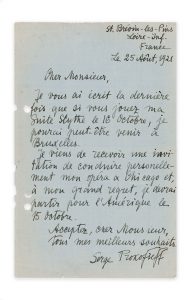 St. Brévin-les-Pins
Loire-Inf.
France
Le 25 Août, 1921
Cher Monsieur,
Je vous ai écrit la dernière
fois que si vous jouez ma
Suite Scythe le 16 Octobre, je
pourrai peut être venir à
Bruxelles.
Je viens de recevoir une invi-
tation de conduire personelle-
ment mon opéra à Chicago et,
à mon grand regret, je devrai
partir pour l'Amérique le
15 Octobre.
Acceptez, cher Monsieur,
tous mes meilleurs souhaits
Serge Prokofieff